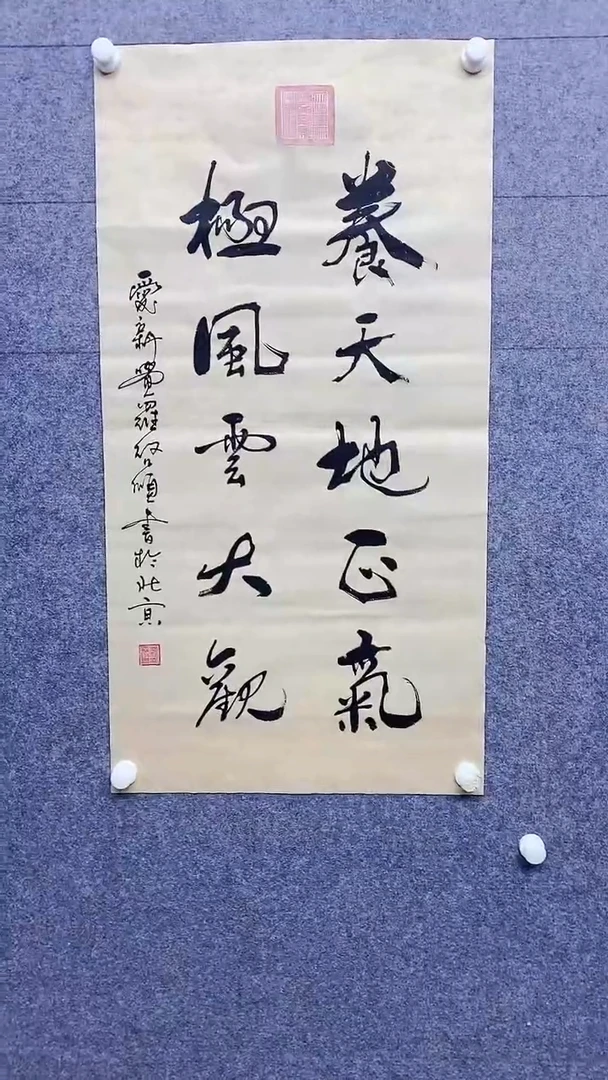 養天地正氣
極風雲大觀
愛新覺羅啓頤書於北京